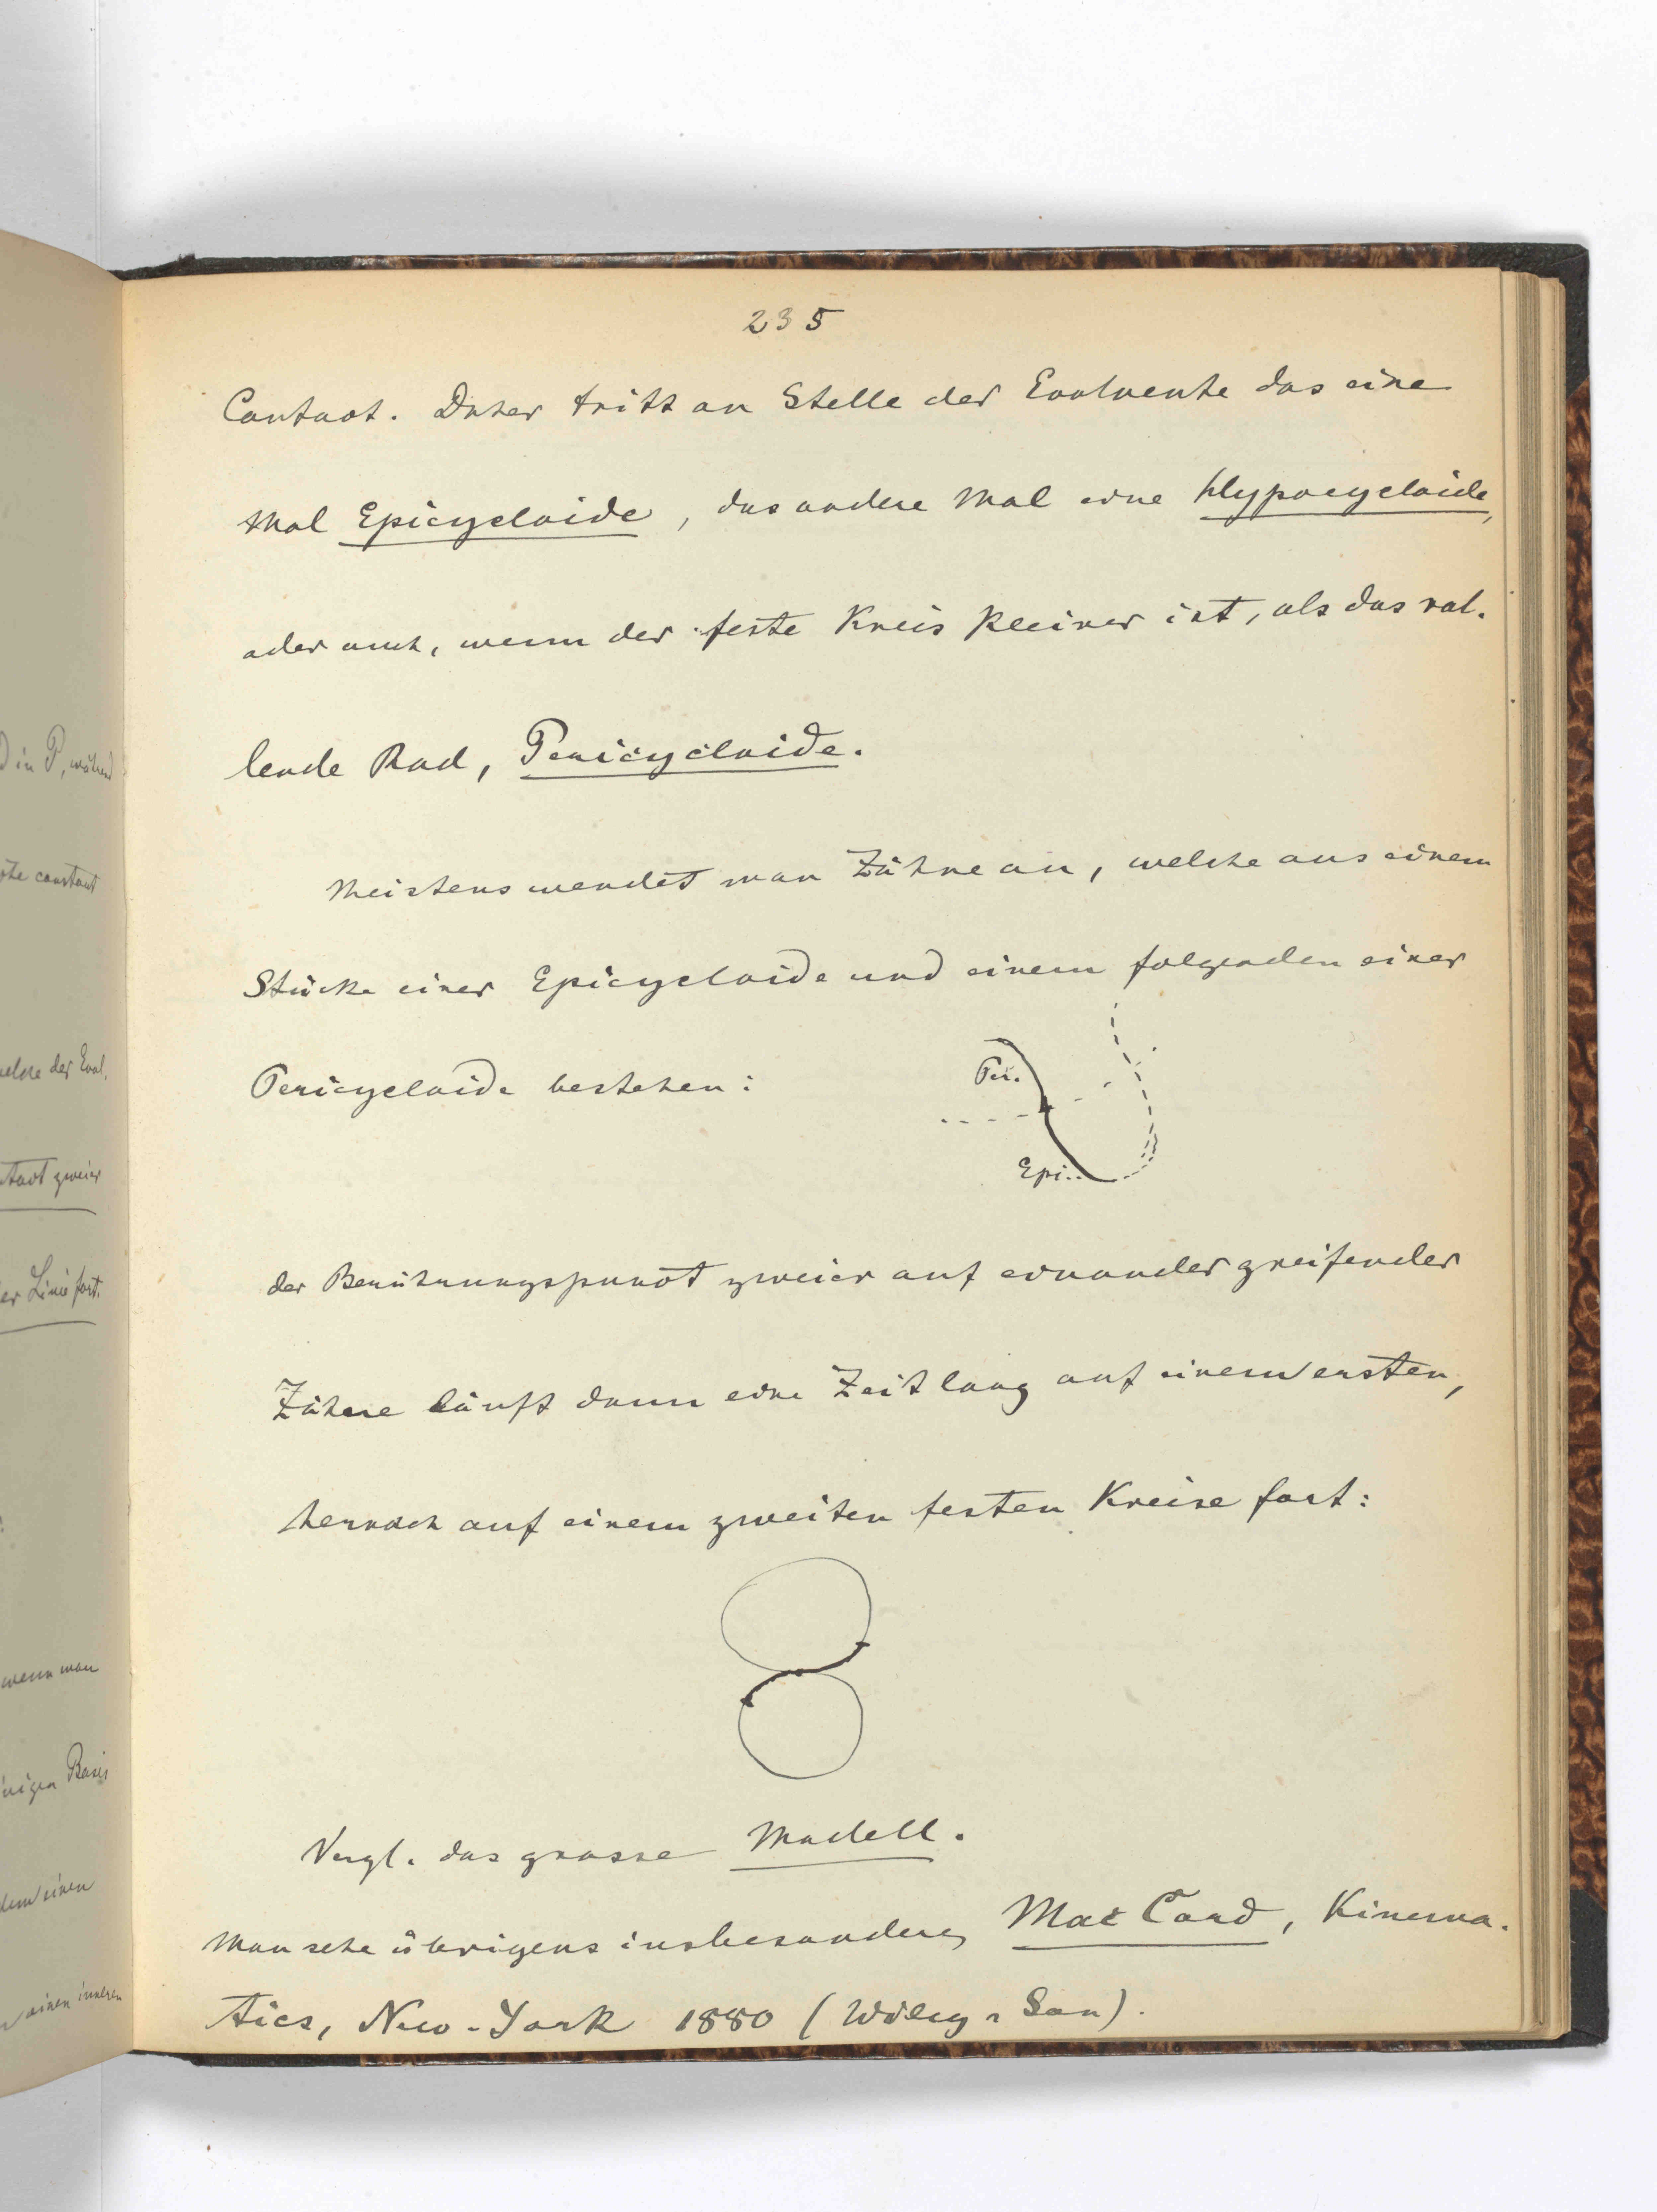 235
Contact. Daher tritt an Stelle der Evolvente das eine
Mal Epicycloide, das andere Mal eine Hypocycloide,
oder auch, wenn der feste Kreis kleiner ist, als das rol-
lende Rad, Pericycloide.
Meistens wendet man Zähne an, welche aus einem
Stücke einer Epicycloide und einem folgenden einer
Pericycloide bestehen:
Per.
Epi.
der Berührungspunct zweier auf einander greifender
Zähne läuft dann eine Zeit lang auf einem ersten,
hernach auf einem zweiten festen Kreise fort:
Vergl. das grosse Modell.
Man sehe übrigens insbesondere Mac Cord, Kinema-
tics, New-York 1880 (Wiley & Son).
D in P, während
constant
welche der Evol.
zweier
er Linie fort.
wenn man
Basis
einen
einen inneren